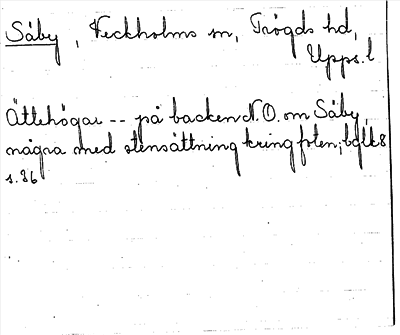 Såby, Veckholms sn, Trögds hd,
Upps.l
Ättehögar -- på backen N.O. om Såby,
några med stensättning kring foten;
s.86